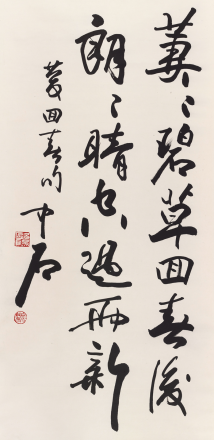 萋〻碧草回春後
朗〻晴空過雨新
回春
中石